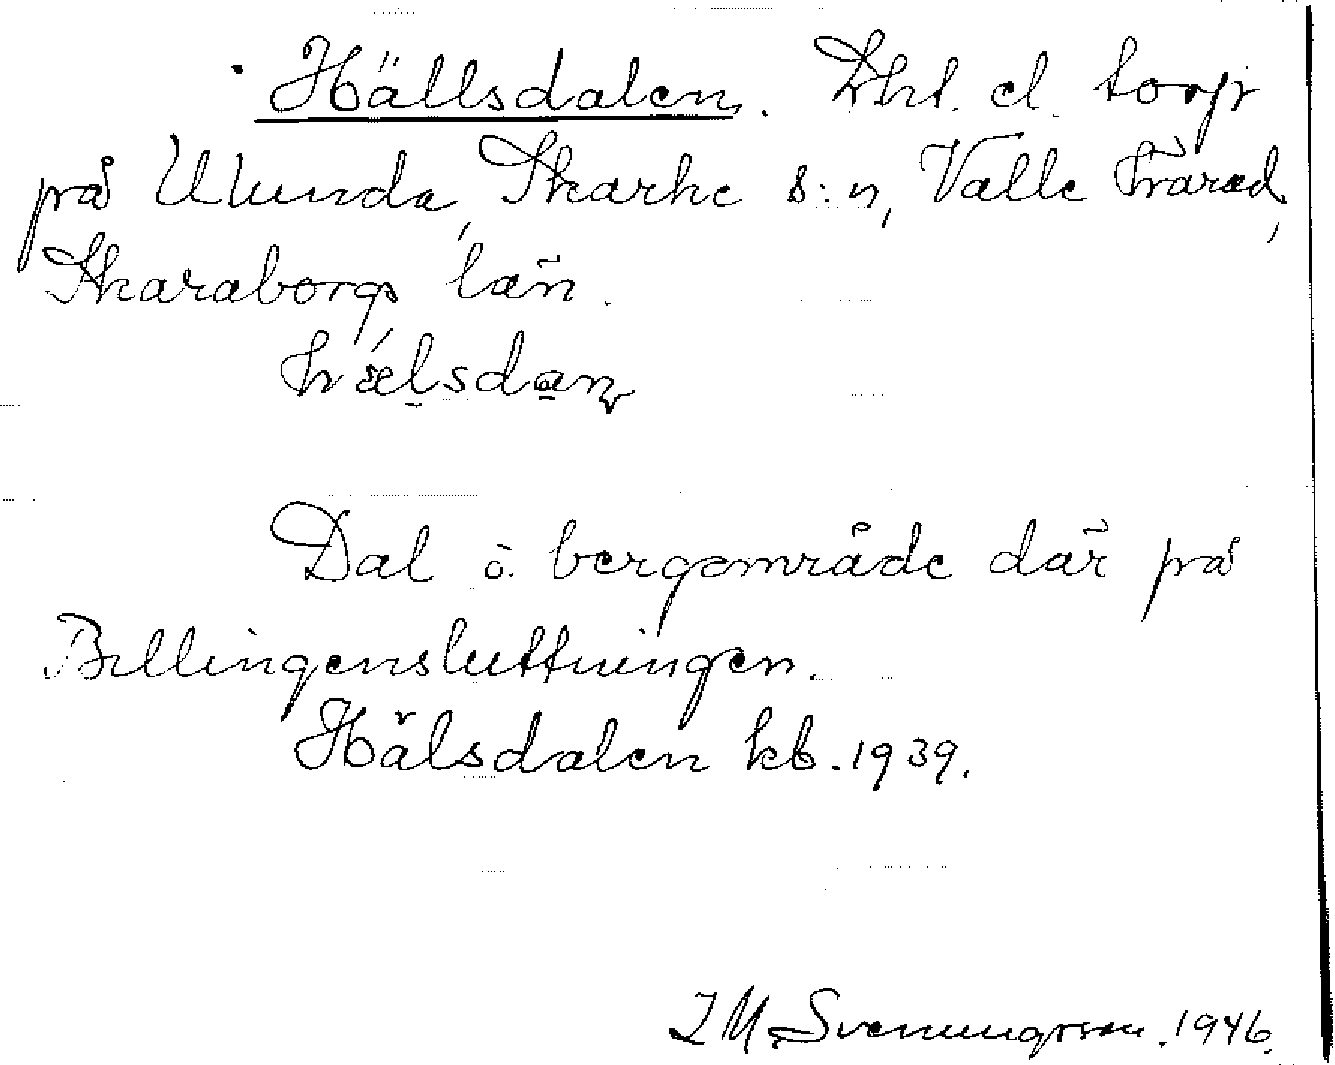 Hällsdalen. Lht. el. torp
på Ulunda, Skarke s:n, Valle härad,
Skaraborgs län.
hǽlsdan
Dal o. bergområde där på
Billingensluttningen.
Hälsdalen kb. 1939.
I M. Svenungsson. 1946.